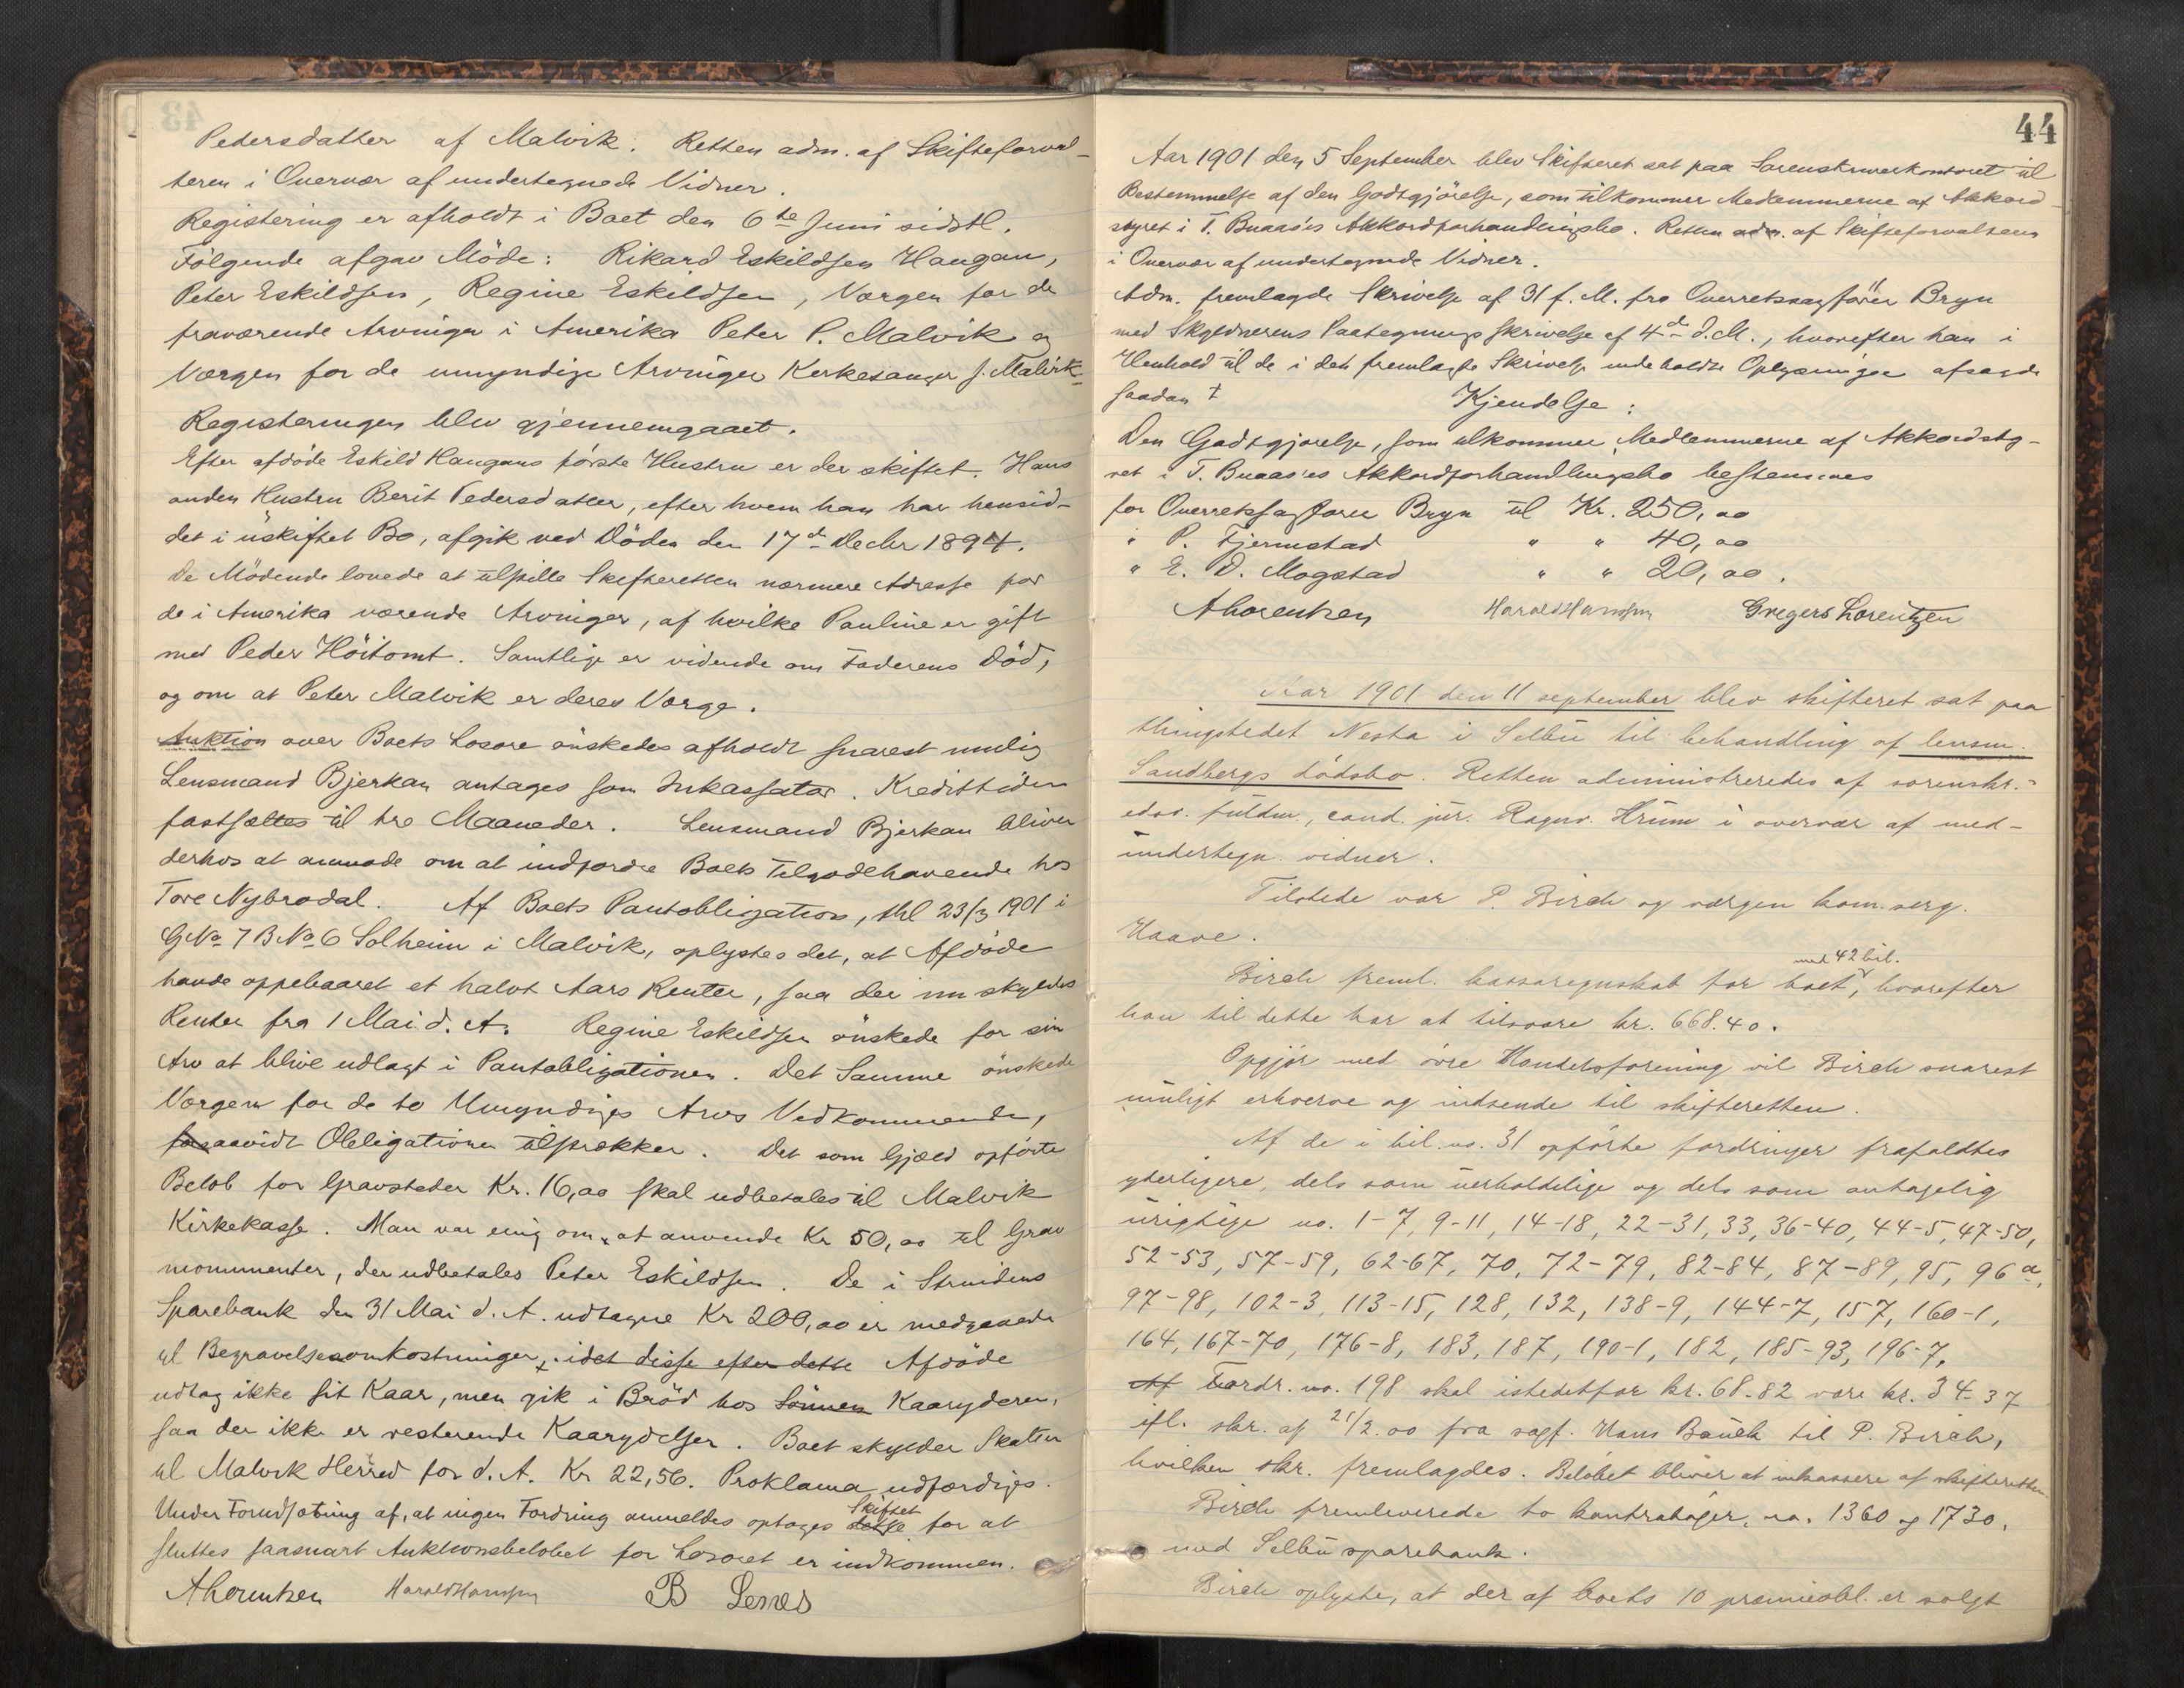 Pedersdatter af Malvik. Retten adm. af Skifteforval-
teren i Overvær af undertegnede Vidner.
Registering er afholdt i Boet den 6te Juni sidstl.
Følgende afgav Möde: Rikard Eskildsen Haugan,
Peter Eskildsen, Regine Eskildsen, Værgen for de
fraværende Arvinger i Amerika Peter P. Malvik og
Værgen for de umyndige Arvinger Kirkesanger J. Malvik.
Registeringen blev gjennemgaaet.
Efter afdöde Eskild Haugans förste Hustru er der skiftet. Hans
anden Hustru Berit Pedersdatter, efter hvem han har hensid-
det i uskiftet Bo, afgik ved Döden den 17de Decbr 1894.
De Mödende lovede at tilstille Skifteretten nærmere Adresse for
de i Amerika værende Arvinger, af hvilke Pauline er gift
med Peder Höitomt. Samtlige er vidende om Faderens Död,
og om at Peter Malvik er deres Værge.
Auktion over Boets Løsøre önskedes afholdt snarest mulig
Lensmand Bjerkan antages som Inkassator. Kredittiden
fastsættes til tre Maaneder. Lensmand Bjerkan bliver
derhos at anmode om at indfordre Boets Tilgodehavende hos
Tore Nybrodal. Af Boets Pantobligation, thl 23/3 1901 i
GNo 7 BNo 6 Solheim i Malvik, oplystes det, at Afdöde
havde oppebaaret et halvt Aars Renter, saa der nu skyldes
Renter fra 1 Mai d. A. Regine Eskildsen önskede for sin
Arv at blive udlagt i Pantobligationen. Det Samme önskede
Værgen for de to Umyndiges Arvs Vedkommende,
forsaavidt Obligationen tilstrækker. Det som Gjæld opförte
Beløb for Gravsteder Kr. 16,00 skal udbetales til Malvik
Kirkekasse. Man var enig om at anvende Kr 50,00 til Grav
monumenter, der udbetales Peter Eskildsen. De i Strindens
Sparebank den 31 Mai d. A. udtagne Kr 200,00 er medgaaede
til Begravelsesomkostninger, idet disse efter dette Afdöde
udtog ikke sit Kaar, men gik i Bröd hos Sönnen Kaaryderen,
saa der ikke er resterende Kaarydelser. Boet skylder Skatter
til Malvik Herred for d. A. Kr 22,56. Proklama udfærdiges.
Under Forudsætning af, at ingen Fordring anmeldes optages dette Skiftet for at
sluttes saasnart Auktionsbeløbet for Løsøret er indkommen.
A Lorentzen HaraldHansen B Lenes
44
Aar 1901 den 5 September blev Skifteret sat paa Sorenskriverkontoret til
Bestemmelse af den Godtgjörelse, som tilkommer Medlemmerne af Akkord-
styret i T. Buaas'es Akkordforhandlingsbo. Retten adm. af Skifteforvalteren
i Overvær af undertegnede Vidner.
Adm. fremlagde Skrivelse af 31 f. M. fra Overretssagförer Bryn
med Skyldnerens Paategningsskrivelse af 4de d. M., hvorefter han i
Henhold til de i den fremlagte Skrivelse indeholdte Oplysninger afsagde
saadan
Kjendelse:
Den Godtgjørelse, som tilkommer Medlemmerne af Akkordsty-
ret i T. Buaas'es Akkordforhandlingsbo bestemmes
for Overretssagfører Bryn til Kr. 250,00
" P. Fjermstad " " 40,00
" E. D. Mogstad " " 20,00.
A Lorentzen HaraldHansen Gregers Lorentzen
Aar 1901 den 11 september blev skifteret sat paa
thingstedet Nesta i Selbu til behandling af lensm.
Sandbergs dödsbo. Retten administreredes af sorenskr.-
edsv. fuldm., cand. jur. Ragnv. Hrüm i overvær af med-
undertegn. vidner.
Tilstede var P. Birch og værgen kom.serg.
Haave.
Birch freml. kasseregnskab for boet, med 42 bil. hvorefter
han til dette har at tilsvare kr. 668.40.
Opgjör med övre Handelsforening vil Birch snarest
muligt erhverve og indsende til skifteretten.
Af de i bil. no. 31 opförte fordringer frafaldtes
yderligere, dels som uerholdelige og dels som antagelig
urigtige no. 1-7, 9-11, 14-18, 22-31, 33, 36-40, 44-5, 47-50,
52-53, 57-59, 62-67, 70, 72-79, 82-84, 87-89, 95, 96 a,
97-98, 102-3, 113-15, 128, 132, 138-9, 144-7, 157, 160-1,
164, 167-70, 176-8, 183, 187, 190-1, 182, 185-93, 196-7.
Af Fordr. no. 198 skal istedetfor kr. 68.82 være kr. 34-37
ifl. skr. af 21/2.00 fra sagf. Hans Bauck til P. Birch,
hvilken skr. fremlagdes. Belöbet bliver at inkassere af skifteretten.
Birch fremleverede to kontraböger, no. 1360 og 1730,
med Selbu sparebank.
Birch oplyste, at der af boets 10 præmieobl. er solgt